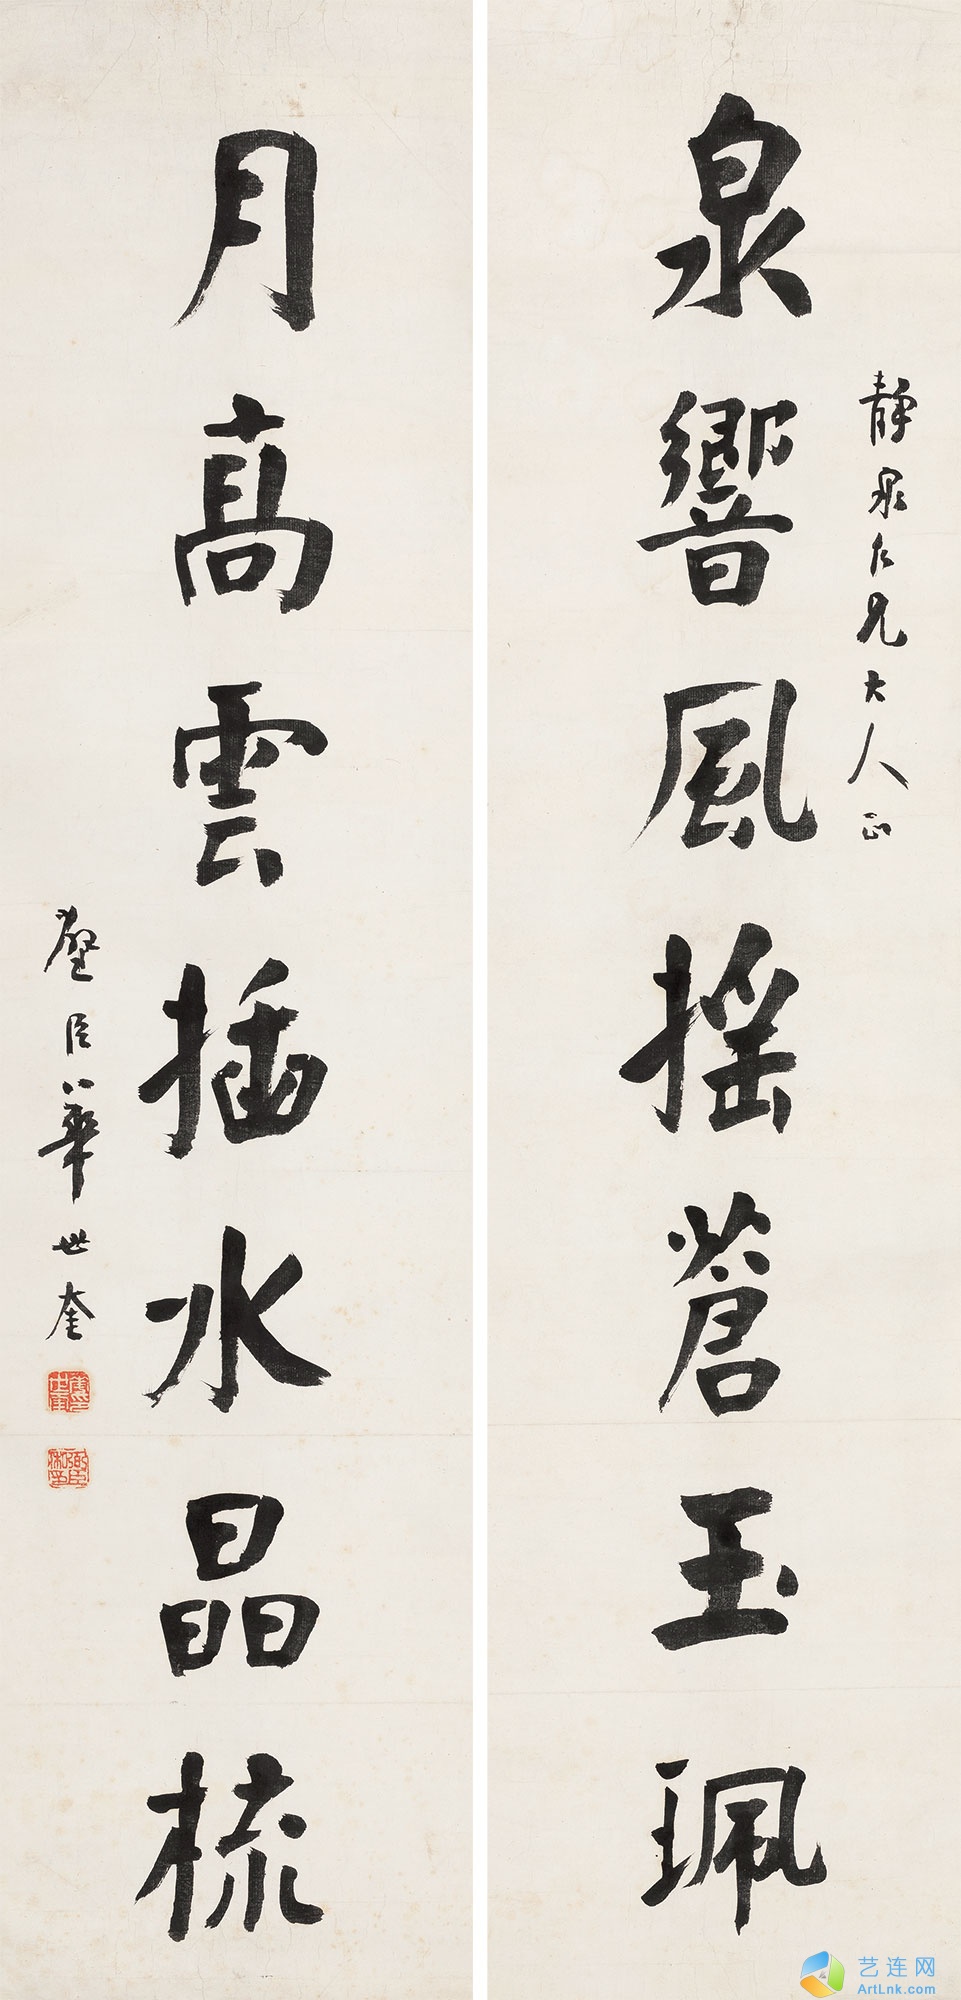 泉響風搖蒼玉珮
靜泉仁兄大人正
月高雲插水晶梳
璧臣華世奎
艺连网
ArtLnk.com